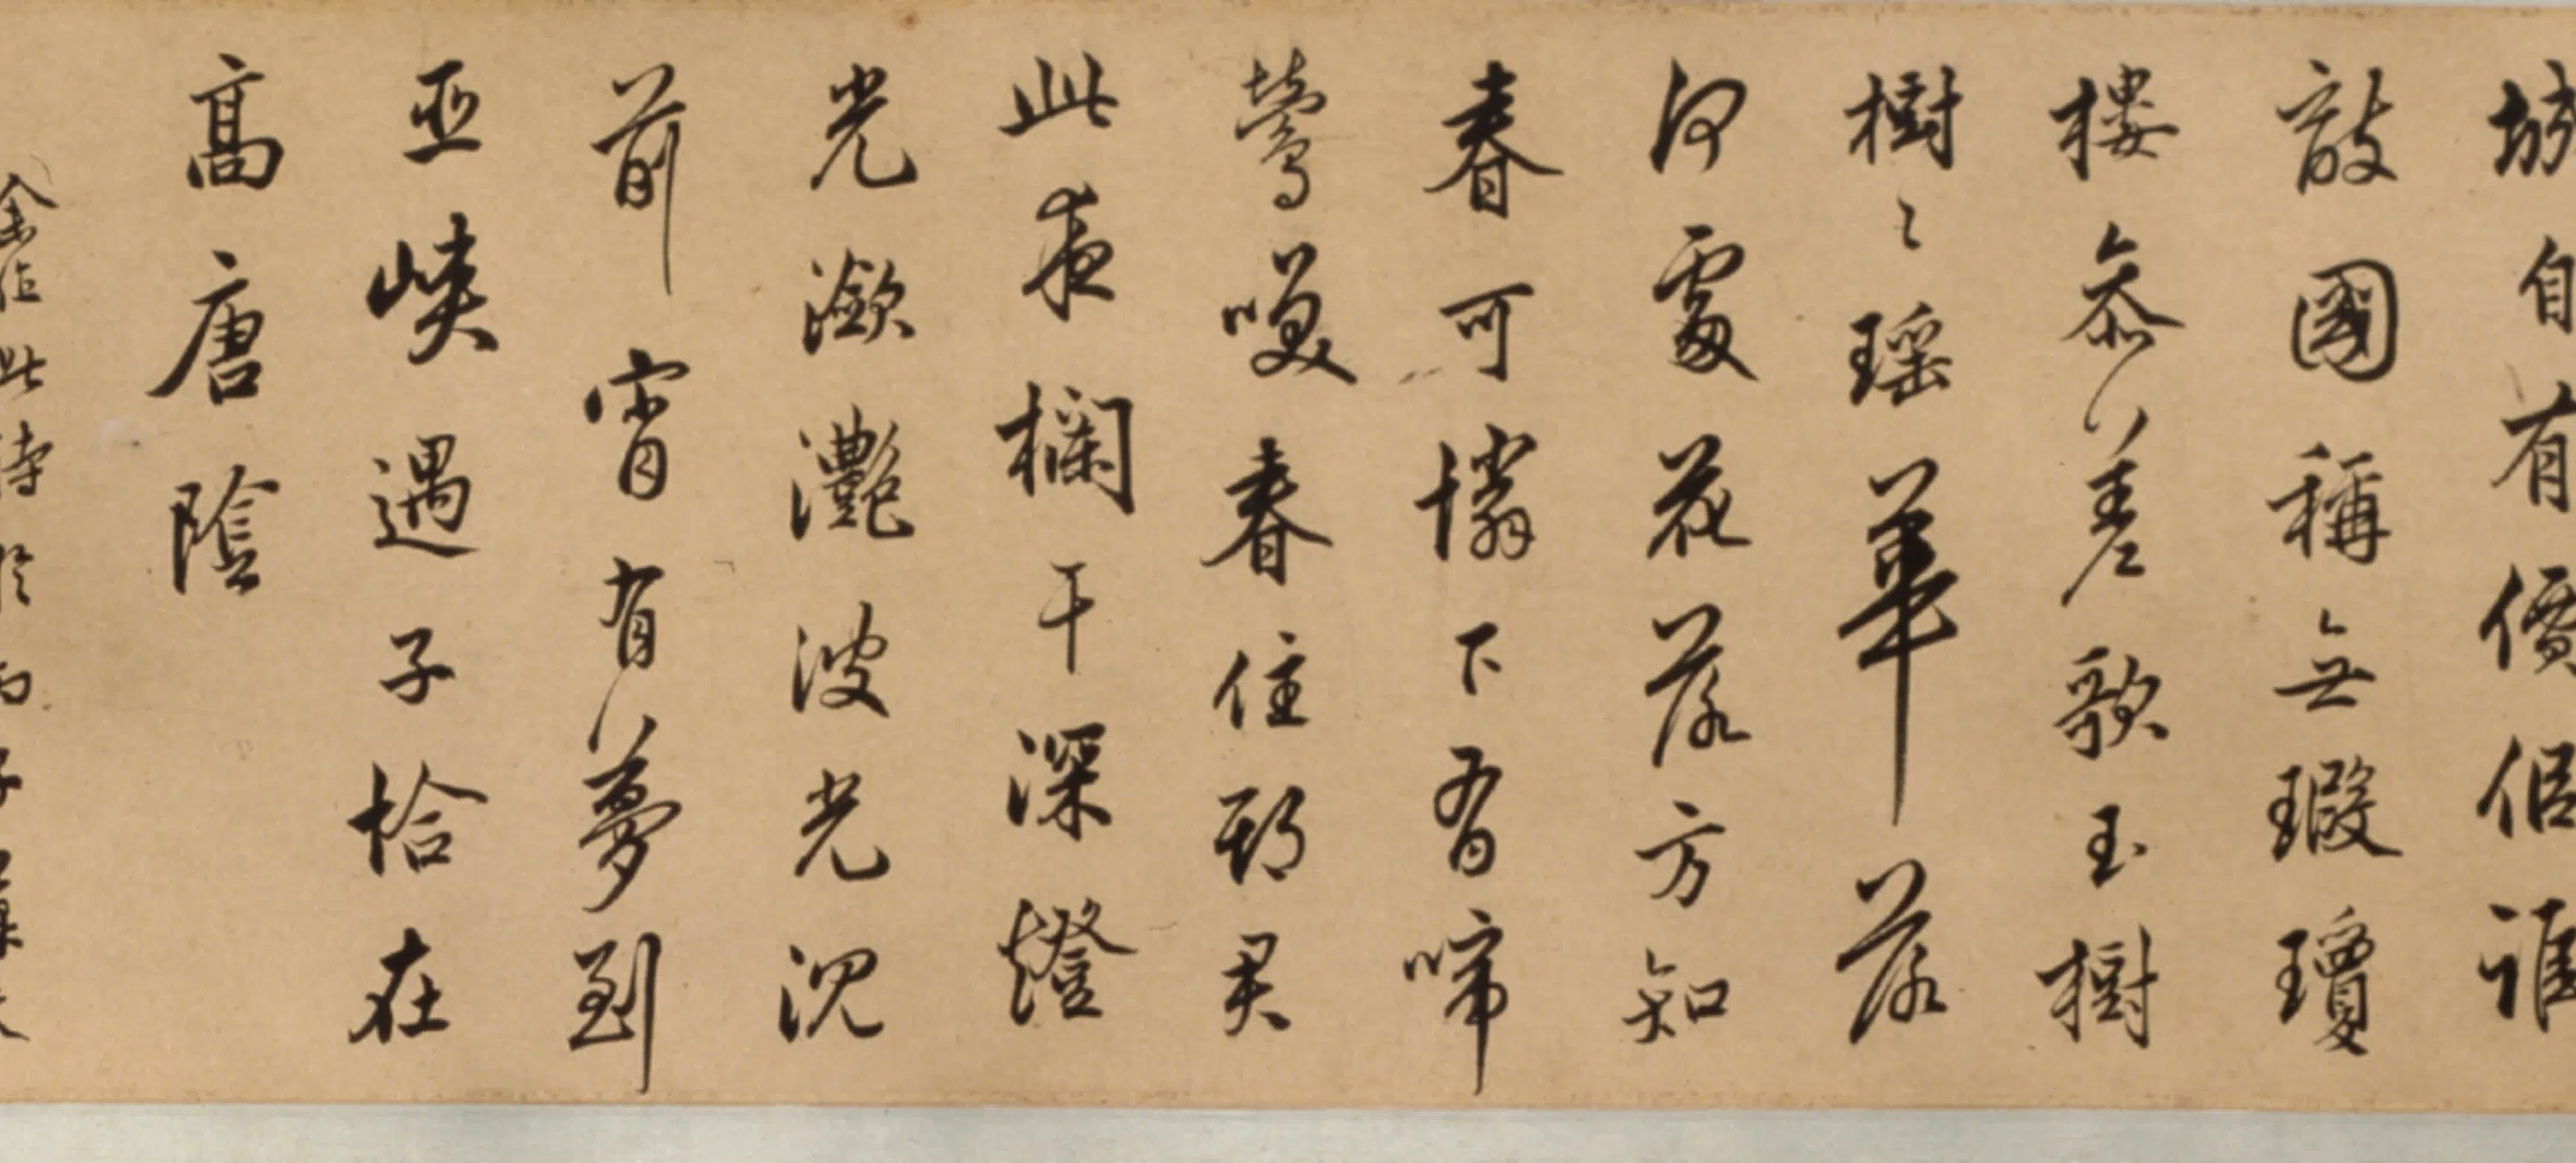 城自有價傾誰
敵國稱無瑕瓊
樓參差歌玉樹
樹〻瑶華落
何處花落方知
春可憐下有啼
鶯喚春住那君
此夜欄干深燈
光瀲灔波光沉
前宵有夢到
巫峽遇子恰在
高唐陰
余作此詩於